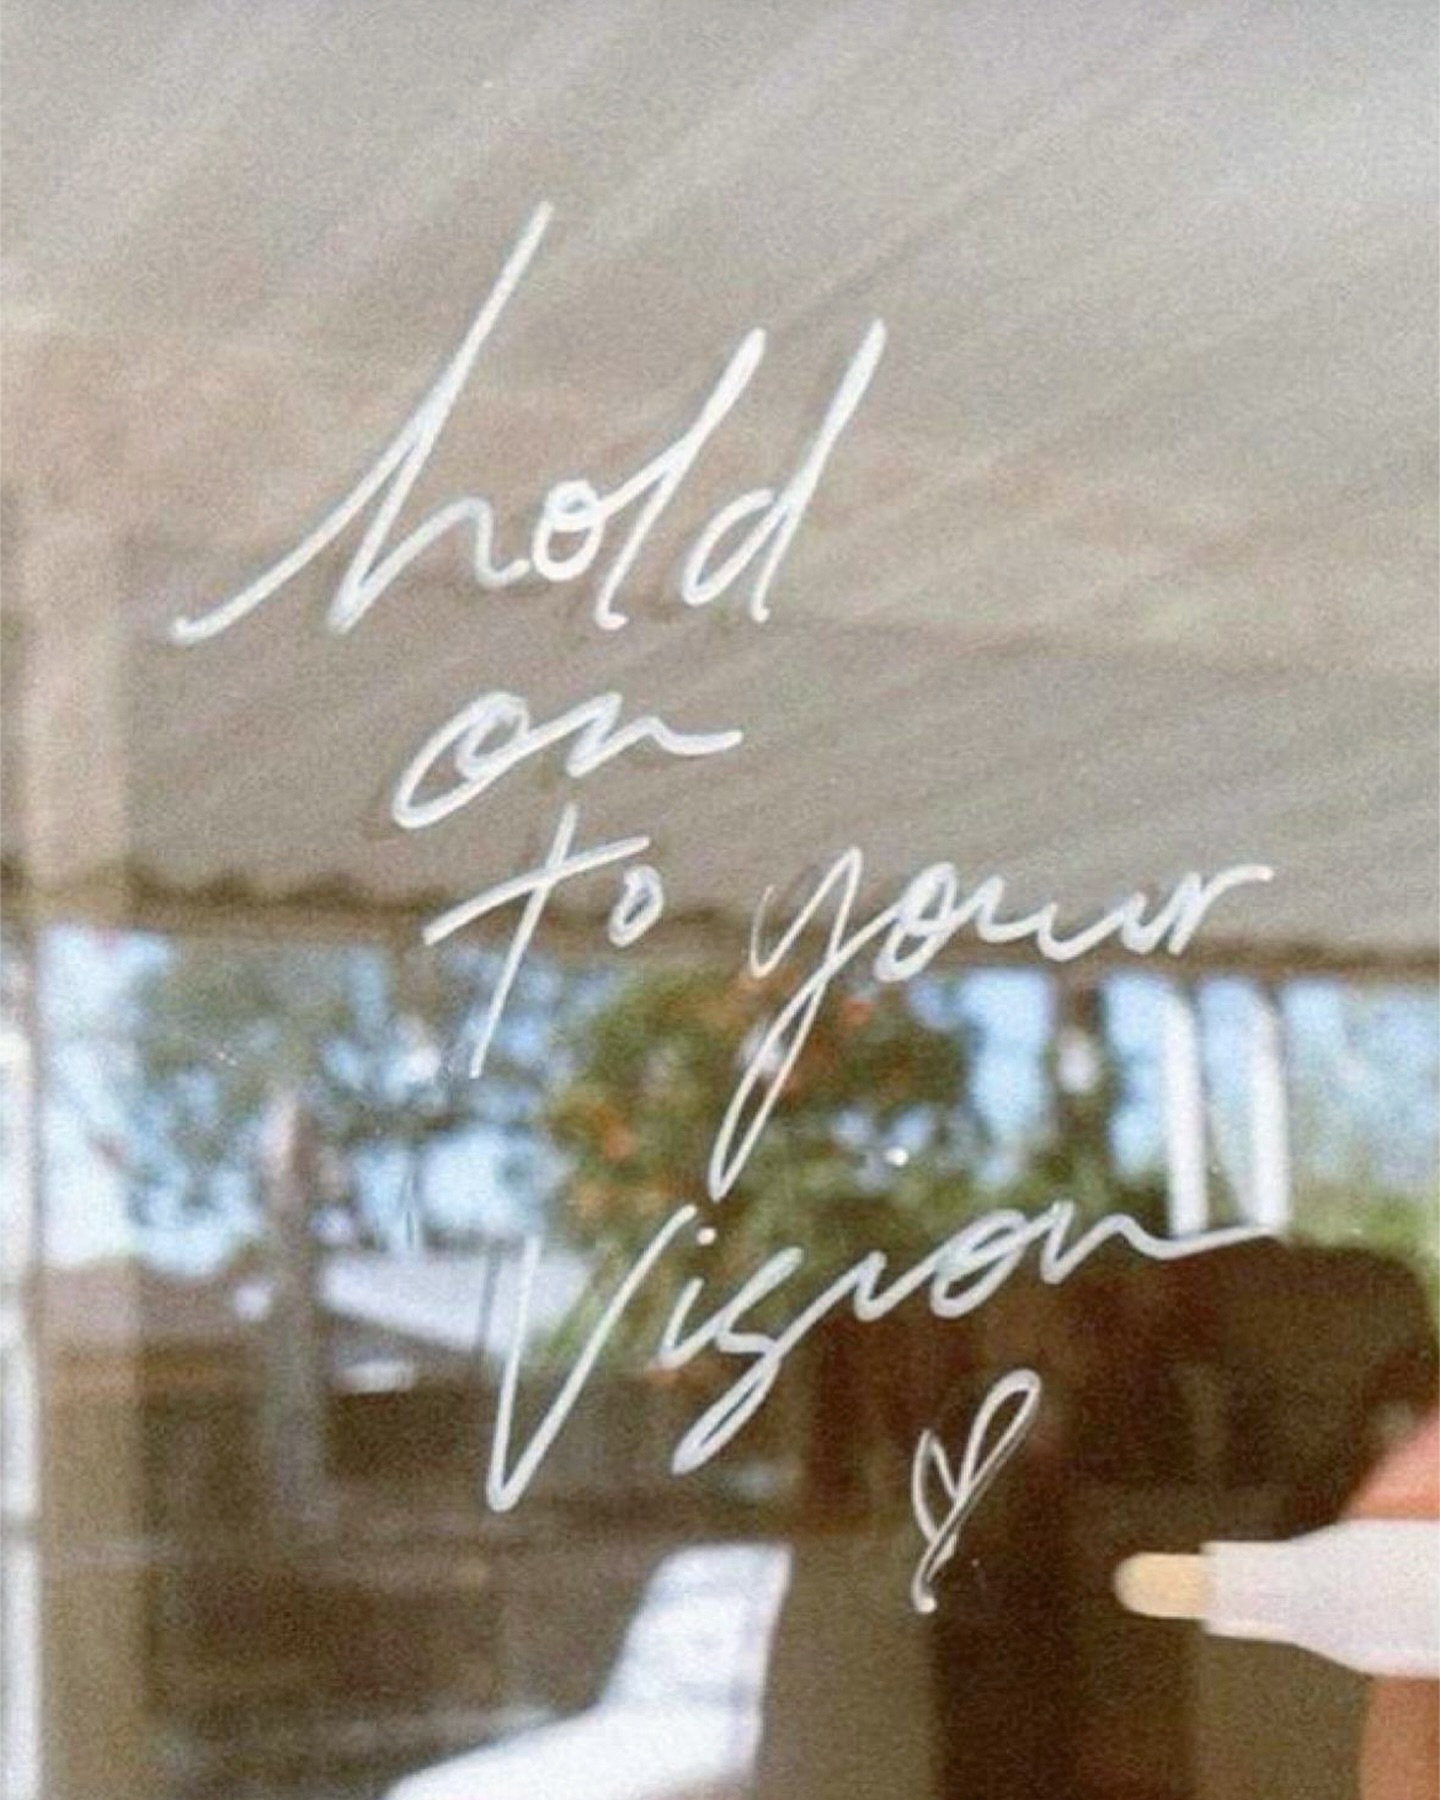 hold
on
to your
Vision